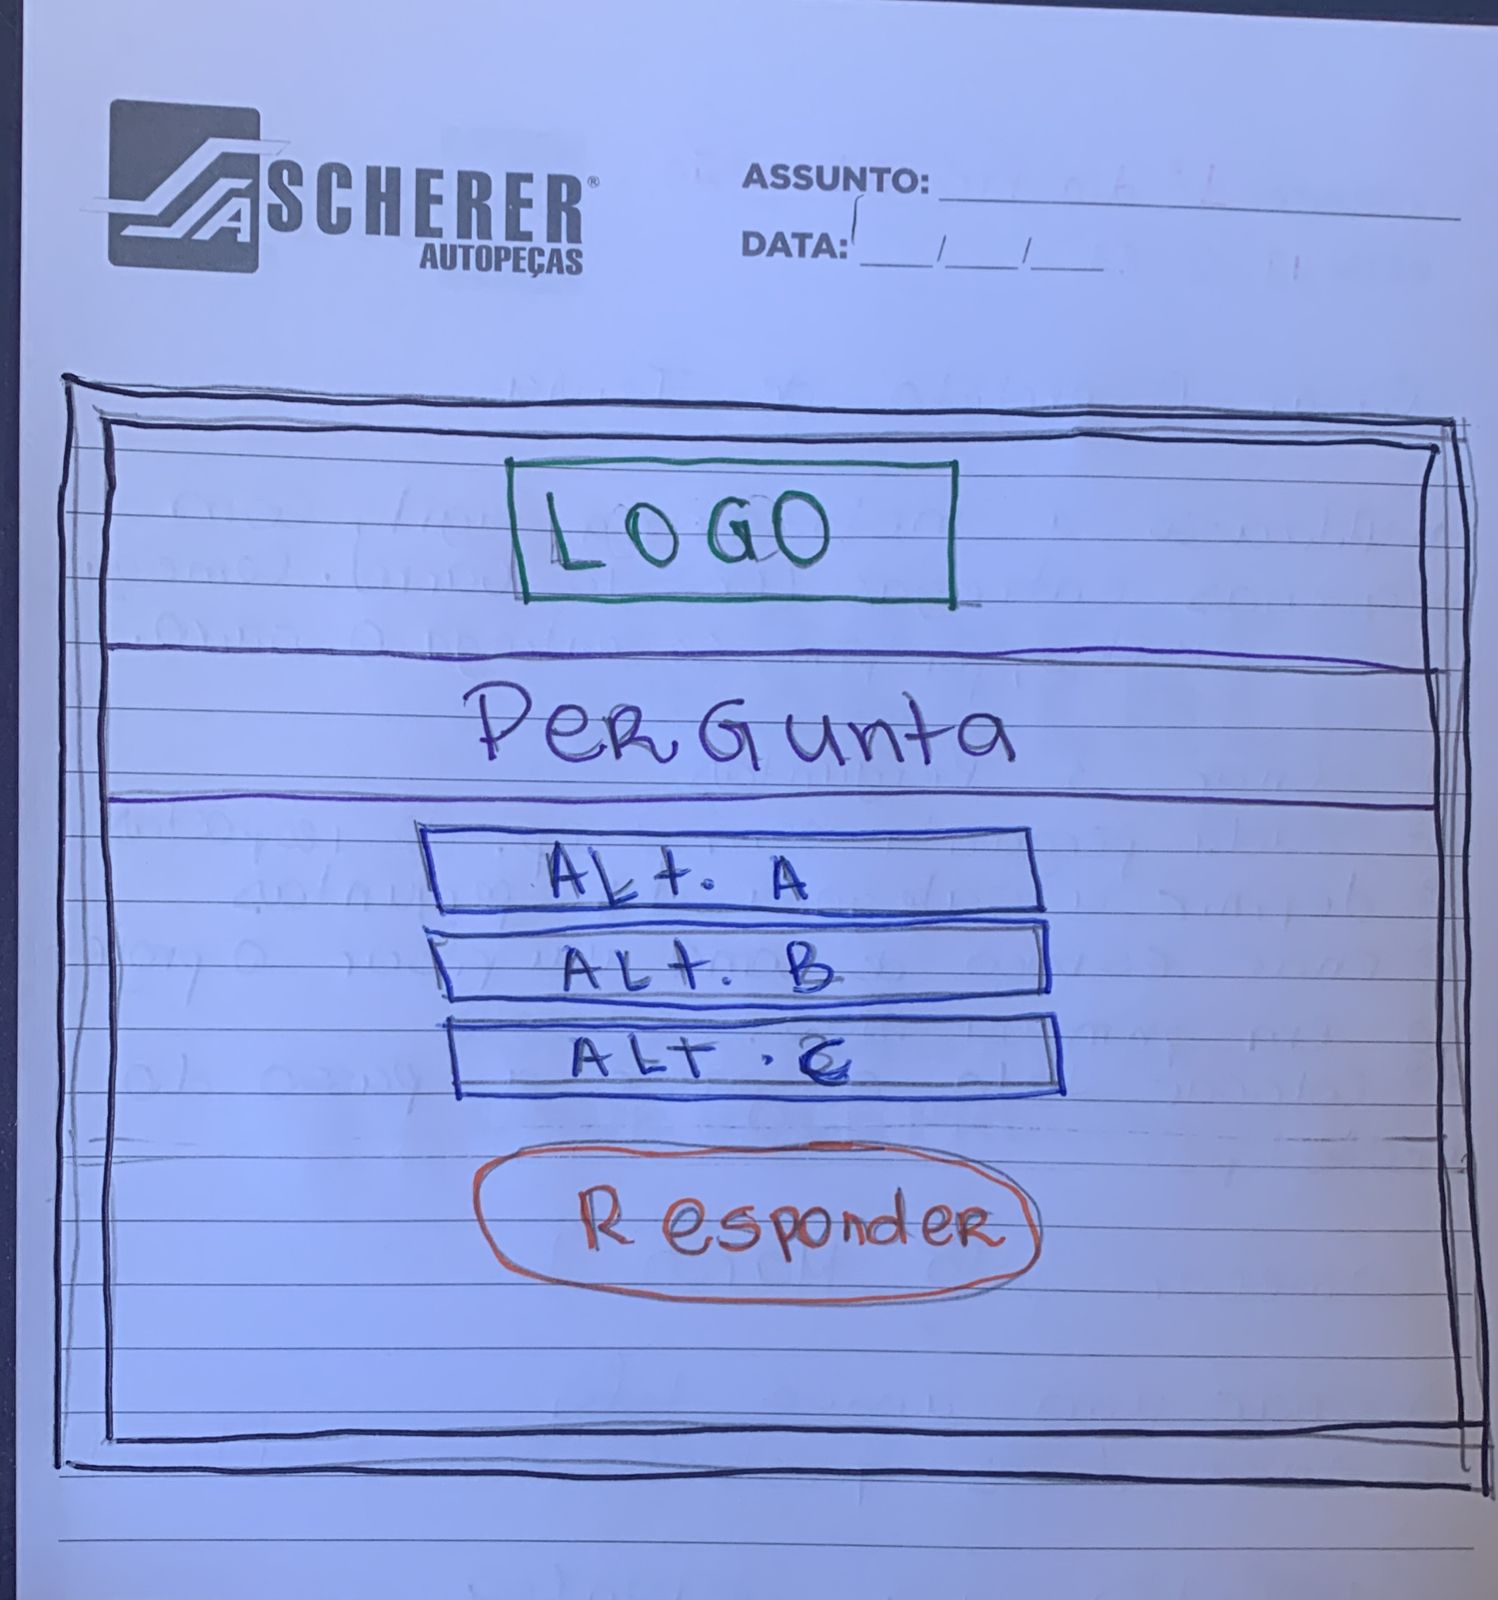 SCHERER®
AUTOPEÇAS
ASSUNTO:
DATA: ___/___/___
LOGO
PerGunta
ALt. A
ALt. B
ALt. C
Responder